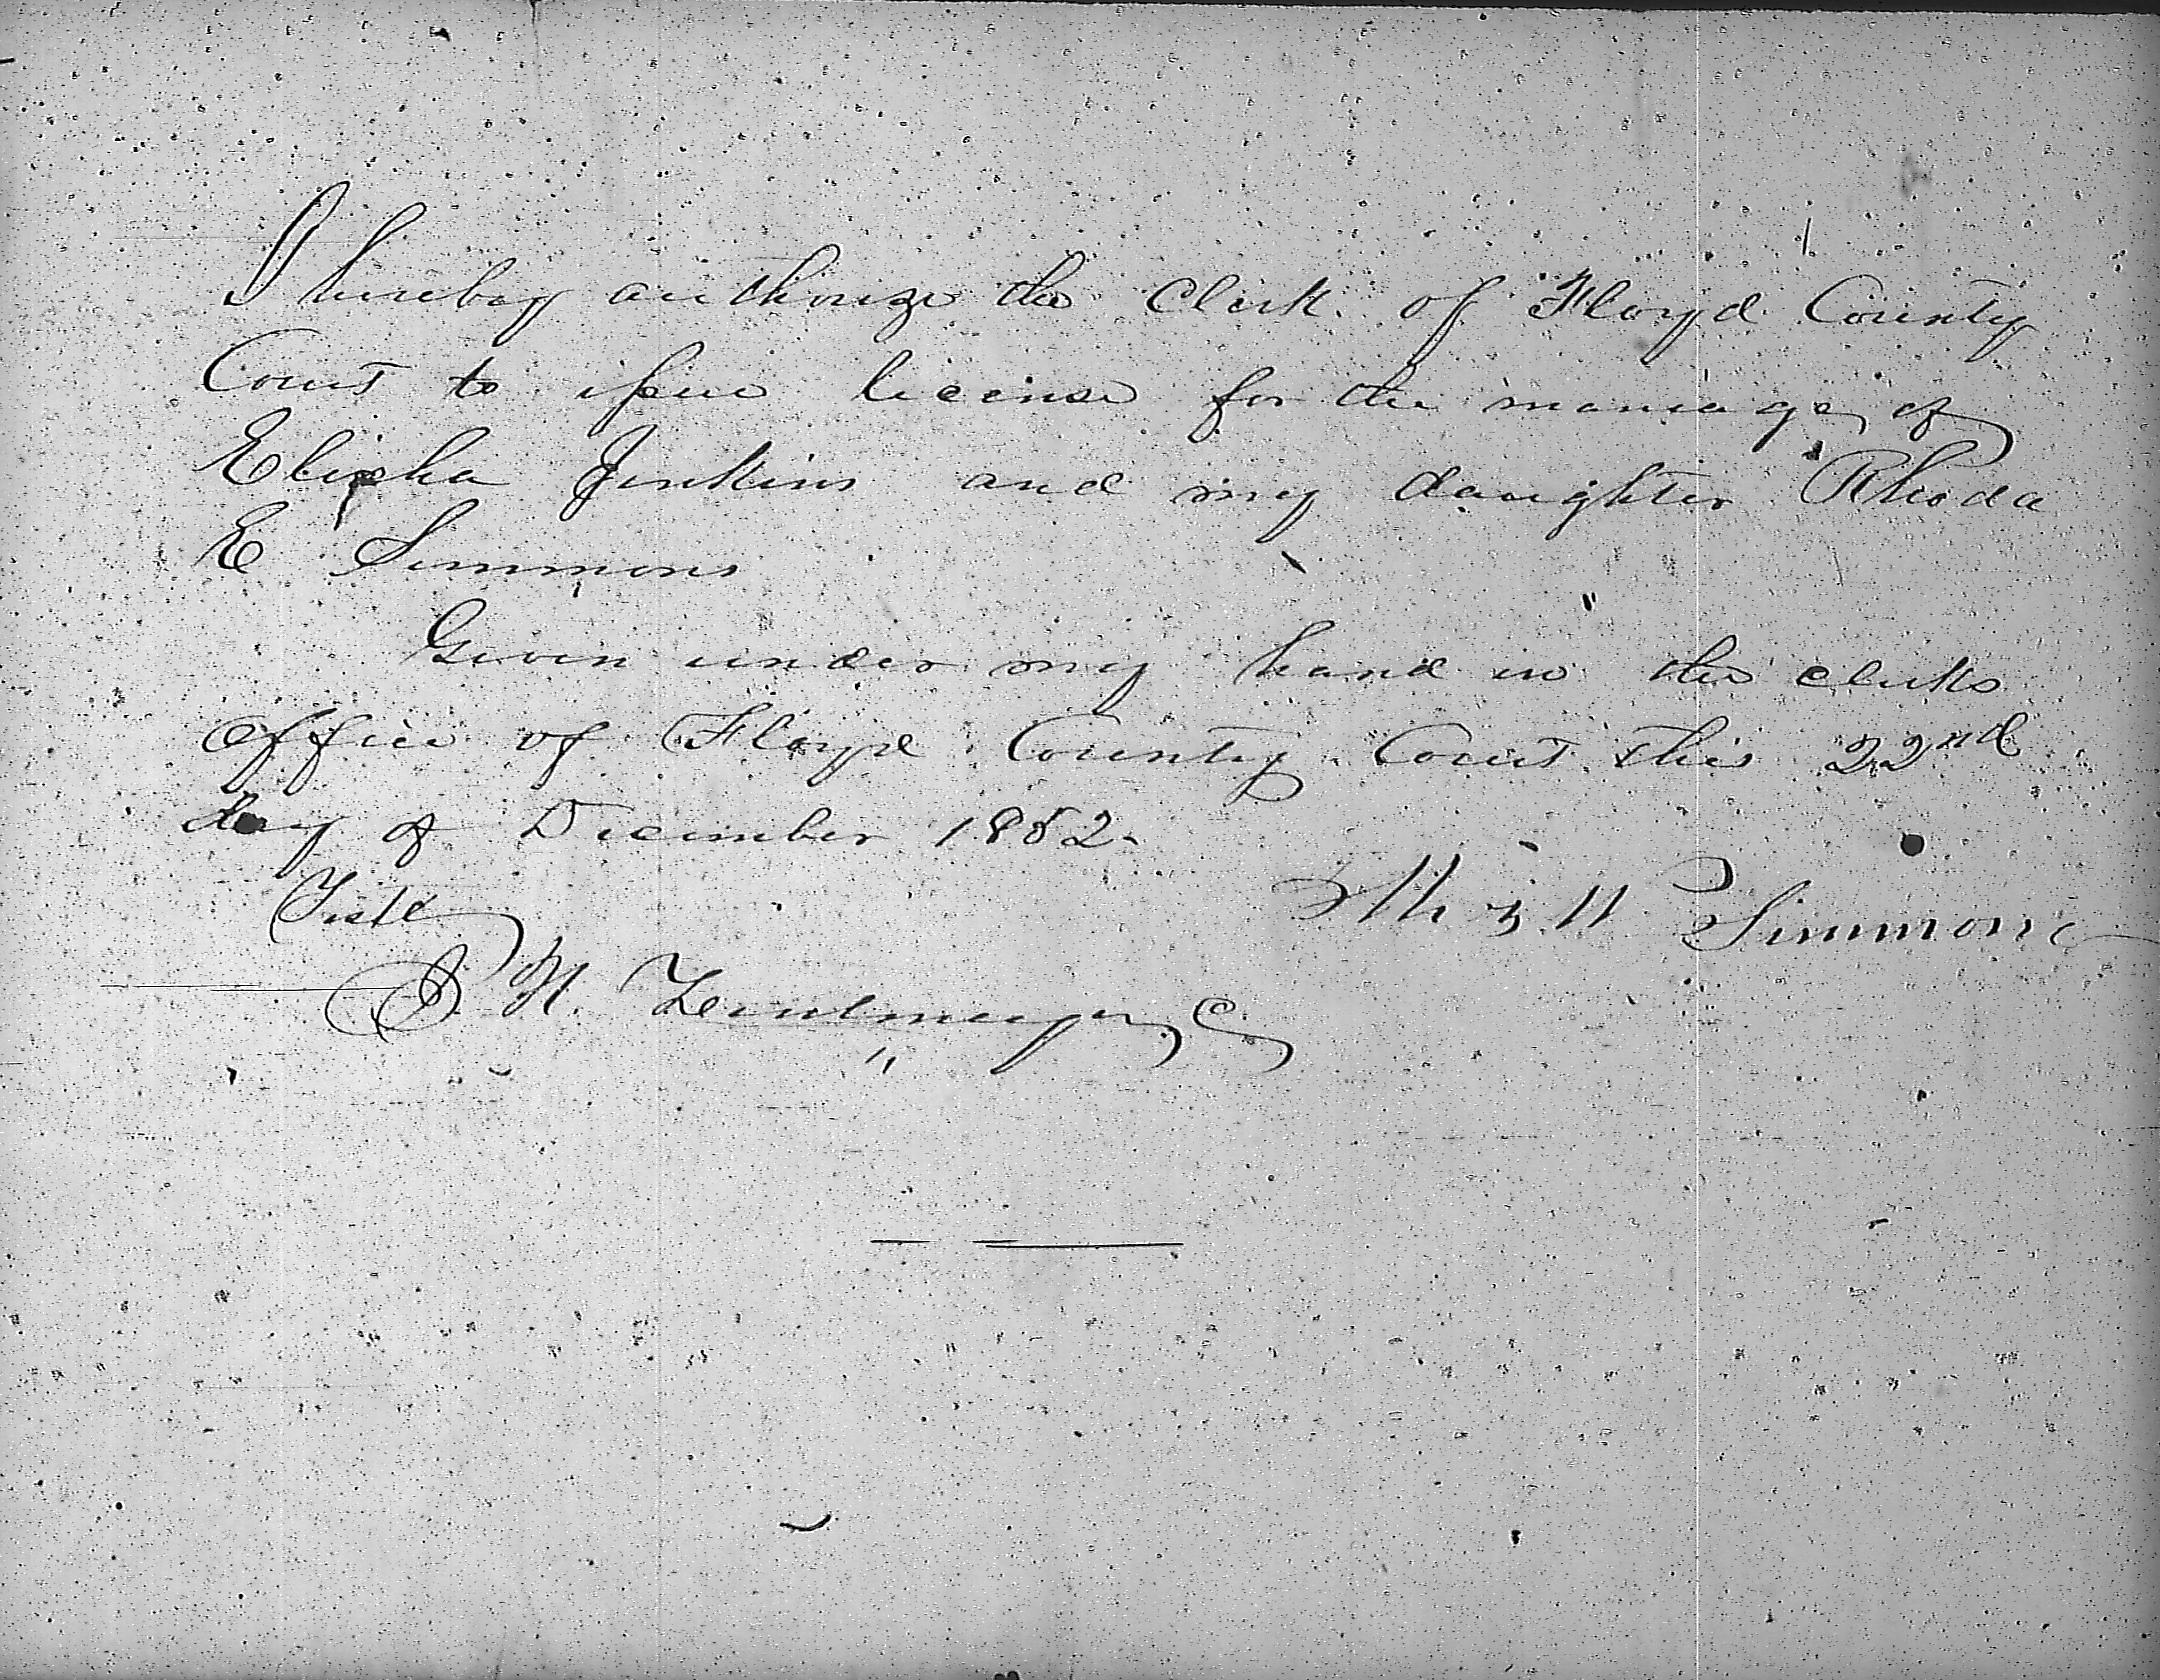 I hereby authorize the Clerk of Floyd County
Court to issue license for the marriage of
Elisha Jenkins and my daughter Rhoda
E Simmons
Given under my hand in the clerks
office of Floyd County Court this 22nd
day of December 1882.
Simmons
Teste
C